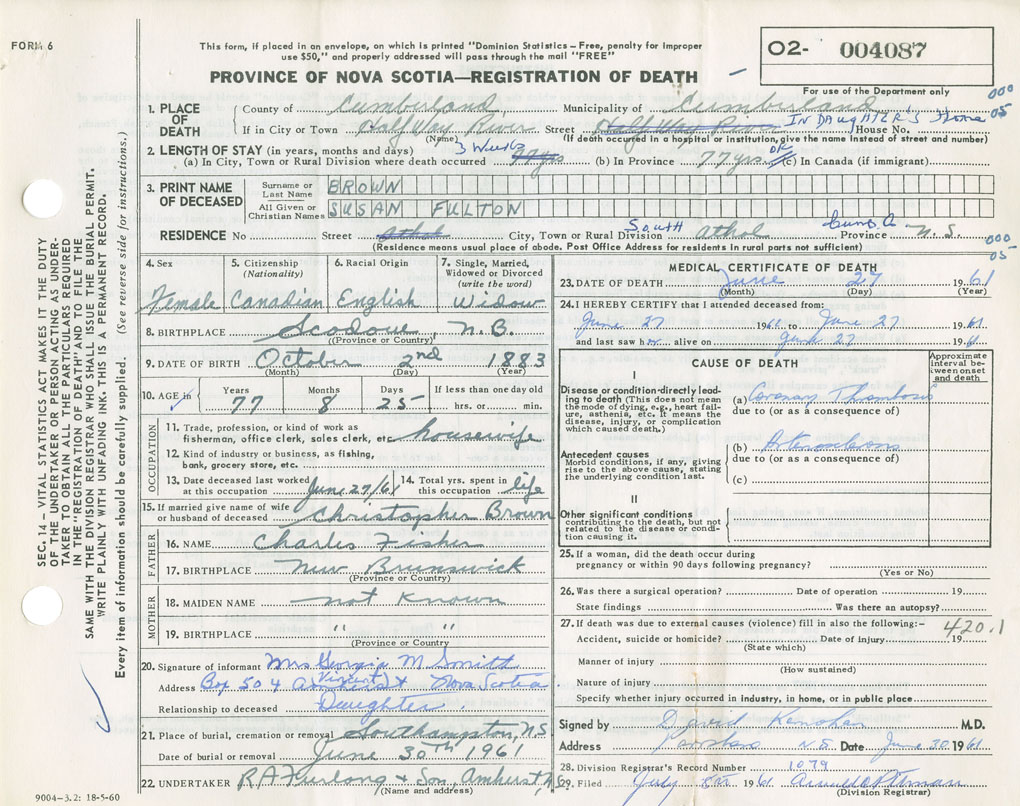 FORM 6
This form, if placed in an envelope, on which is printed "Dominion Statistics – Free, penalty for improper
use $50," and properly addressed will pass through the mail "FREE"
PROVINCE OF NOVA SCOTIA—REGISTRATION OF DEATH
O2- 004087
For use of the Department only
000
05
1. PLACE OF DEATH
County of Cumberland Municipality of Cumberland
If in City or Town Half Way River Street Half Way River IN DAUGHTER'S Home House No.
(Name) (If death occurred in a hospital or institution, give the name instead of street and number)
2. LENGTH OF STAY (in years, months and days)
(a) In City, Town or Rural Division where death occurred 3 Weeks 77 yrs (b) In Province 77 yrs. OK (c) In Canada (if immigrant)
3. PRINT NAME OF DECEASED
Surname or Last Name BROWN
All Given or Christian Names SUSAN FULTON
RESIDENCE No Street Athol City, Town or Rural Division South Athol Cumb. Co Province N.S.
(Residence means usual place of abode. Post Office Address for residents in rural parts not sufficient)
000
05
4. Sex
Female
5. Citizenship (Nationality)
Canadian
6. Racial Origin
English
7. Single, Married, Widowed or Divorced (write the word)
Widow
8. BIRTHPLACE Scodove, N.B.
(Province or Country)
9. DATE OF BIRTH October 2nd 1883
(Month) (Day) (Year)
10. AGE in Years 77 Months 8 Days 25 If less than one day old hrs. or min.
OCCUPATION
11. Trade, profession, or kind of work as fisherman, office clerk, sales clerk, etc. housewife
12. Kind of industry or business, as fishing, bank, grocery store, etc.
13. Date deceased last worked at this occupation June 27/61
14. Total yrs. spent in this occupation life
15. If married give name of wife or husband of deceased Christopher Brown
FATHER
16. NAME Charles Fisher
17. BIRTHPLACE New Brunswick
(Province or Country)
MOTHER
18. MAIDEN NAME not Known
19. BIRTHPLACE " "
(Province or Country)
20. Signature of informant Mrs Georgia M Smith
(Vincent)
Address Box 504 Amherst Nova Scotia
Relationship to deceased Daughter.
21. Place of burial, cremation or removal Southampton, N.S
Date of burial or removal June 30th 1961
22. UNDERTAKER R.A. Furlong & Son, Amherst, N.S.
(Name and address)
MEDICAL CERTIFICATE OF DEATH
23. DATE OF DEATH June 27 1961
(Month) (Day) (Year)
24. I HEREBY CERTIFY that I attended deceased from:
June 27 1961 to June 27 1961
and last saw her alive on June 27 1961
CAUSE OF DEATH
Approximate interval between onset and death
I
Disease or condition directly leading to death (This does not mean the mode of dying, e.g., heart failure, asthenia, etc. It means the disease, injury, or complication which caused death.)
(a) Coronary Thrombosis
due to (or as a consequence of)
Antecedent causes
Morbid conditions, if any, giving rise to the above cause, stating the underlying condition last.
(b)
due to (or as a consequence of)
(c)
II
Other significant conditions contributing to the death, but not related to the disease or condition causing it.
25. If a woman, did the death occur during pregnancy or within 90 days following pregnancy?
(Yes or No)
26. Was there a surgical operation? Date of operation 19
State findings Was there an autopsy?
27. If death was due to external causes (violence) fill in also the following:-
420.1
Accident, suicide or homicide? Date of injury 19
(State which)
Manner of injury
(How sustained)
Nature of injury
Specify whether injury occurred in industry, in home, or in public place
Signed by David M.D.
Address Parrsboro N.S. Date June 30 1961
28. Division Registrar's Record Number 1079
29. Filed July 8th 1961
(Division Registrar)
SEC. 14 – VITAL STATISTICS ACT MAKES IT THE DUTY
OF THE UNDERTAKER OR PERSON ACTING AS UNDER-
TAKER TO OBTAIN ALL THE PARTICULARS REQUIRED
IN THE "REGISTRATION OF DEATH" AND TO FILE THE
SAME WITH THE DIVISION REGISTRAR WHO SHALL ISSUE THE BURIAL PERMIT.
WRITE PLAINLY WITH UNFADING INK. THIS IS A PERMANENT RECORD.
Every item of information should be carefully supplied. (See reverse side for instructions.)
9004-3.2: 18-5-60